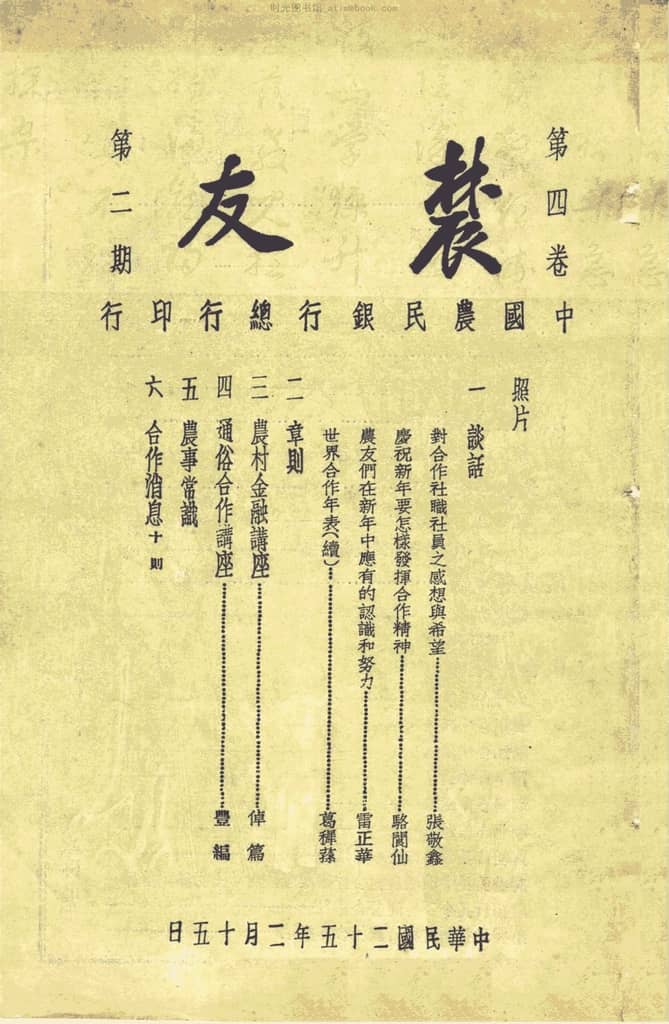 时光图书馆_atimebook.com
第四卷
農友
第二期
中國農民銀行總行印行
照片
一 談話
對合作社職社員之感想與希望 張敬鑫
慶祝新年要怎樣發揮合作精神 駱閬仙
農友們在新年中應有的認識和努力 雷正華
世界合作年表(續) 葛穉蓀
二 章則
三 農村金融講座 倬篇
四 通俗合作講座 豐編
五 農事常識
六 合作消息十則
中華民國二十五年二月十五日